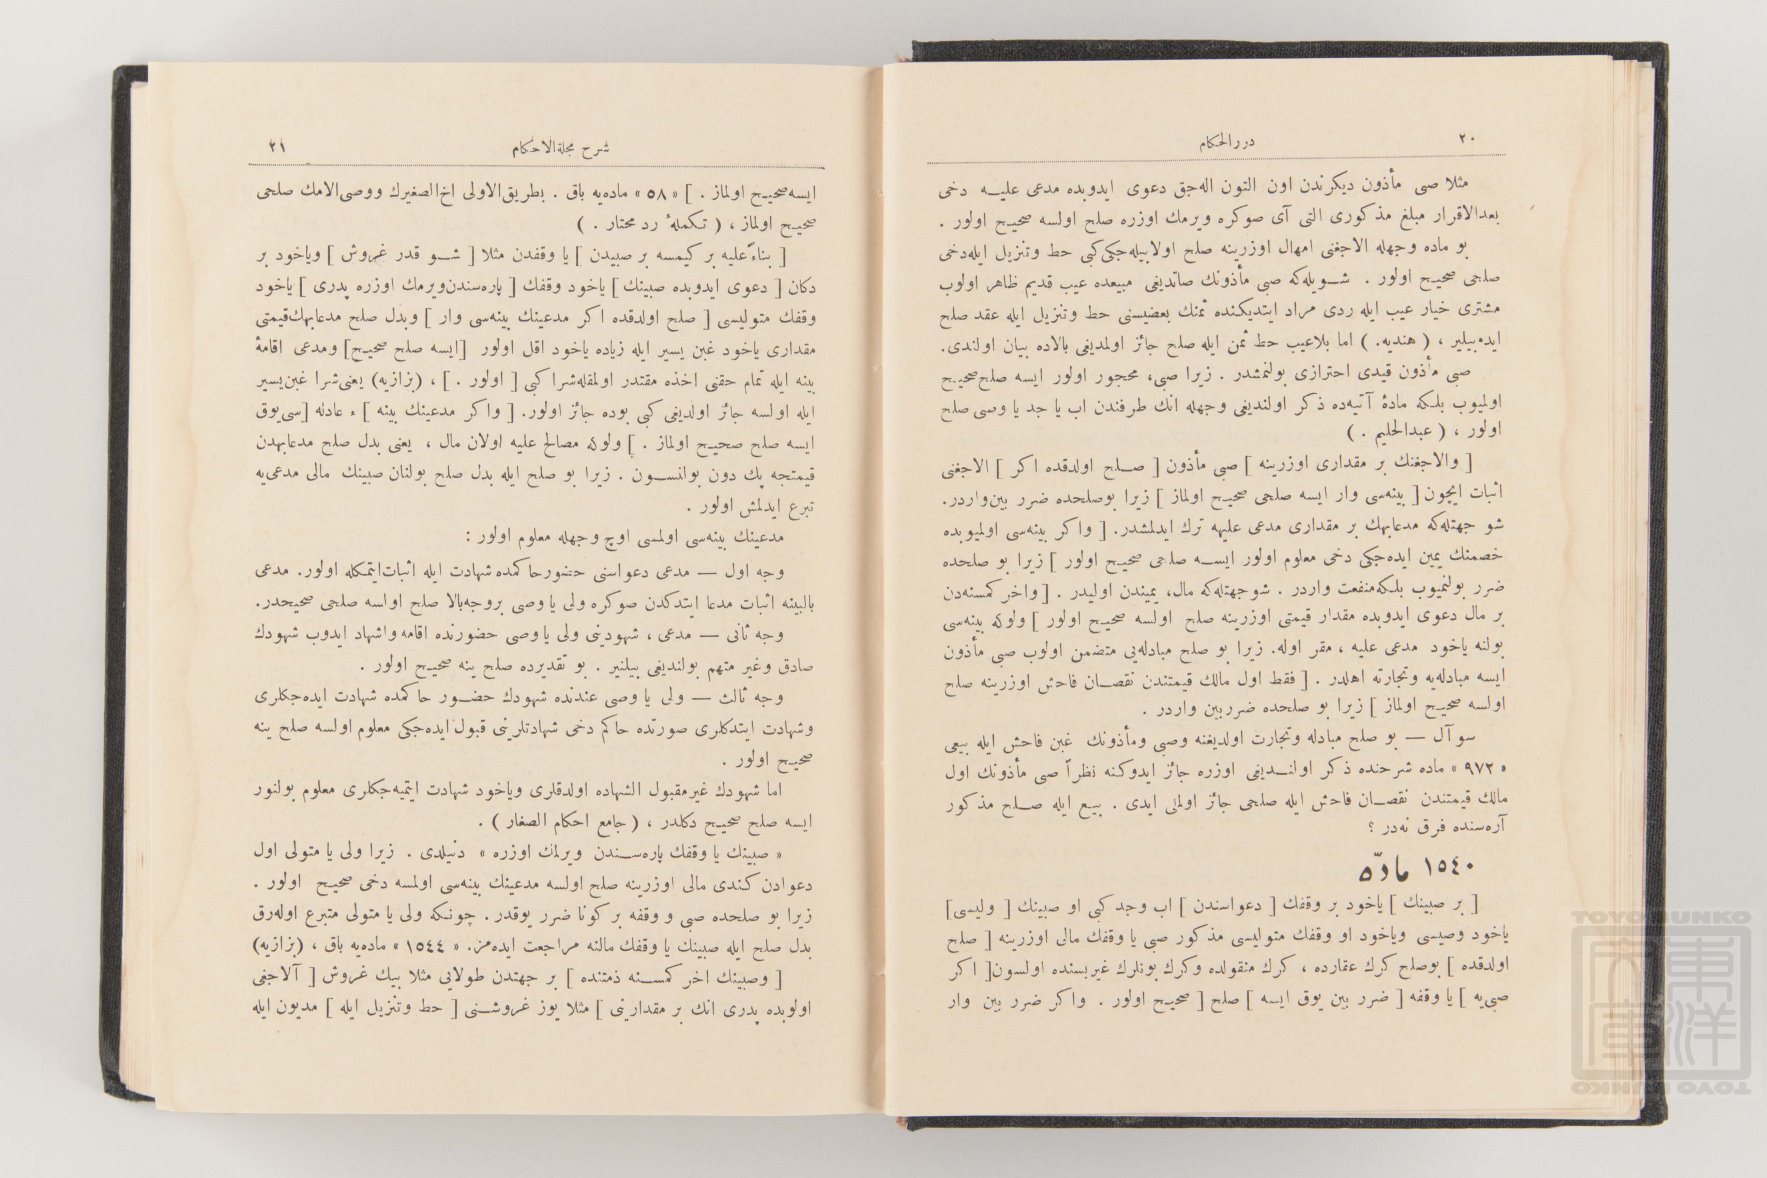 ٢٠
درر الحكام
مثلا صبى مأذون ديكرندن اون التون اله جق دعوى ايدوبده مدعى عليه دخى
بعد الاقرار مبلغ مذكورى التى آى صوكره ويرمك اوزره صلح اولسه صحيح اولور .
بو ماده وجهله الاجغنى امهال اوزرينه صلح اولابيله جكى كبى حط وتنزيل ايله دخى
صلحى صحيح اولور . شويله كه صبى مأذونك صاتديغى مبيعده عيب قديم ظاهر اولوب
مشترى خيار عيب ايله ردى مراد ايتديكنده ثمنك بعضيسنى حط وتنزيل ايله عقد صلح
ايده بيلير ، ( هنديه . ) اما بلاعيب حط ثمن ايله صلح جائز اولمديغى بالاده بيان اولندى .
صبى مأذون قيدى احترازى بولنمشدر . زيرا صبى، محجور اولور ايسه صلح صحيح
اولميوب بلكه مادۀ آتيه ده ذكر اولنديغى وجهله انك طرفندن اب يا جد يا وصى صلح
اولور ، ( عبدالحليم . )
[ والاجغنك بر مقدارى اوزرينه ] صبى مأذون [ صلح اولدقده اكر ] الاجغنى
اثبات ايچون [ بينه سى وار ايسه صلحى صحيح اولماز ] زيرا بوصلحده ضرر بين واردر .
شو جهتله كه مدعابهك بر مقدارى مدعى عليهه ترك ايدلمشدر . [ واكر بينه سى اولميوبده
خصمنك يمين ايده جكى دخى معلوم اولور ايسه صلحى صحيح اولور ] زيرا بو صلحده
ضرر بولنميوب بلكه منفعت واردر . شو جهتله كه مال، يميندن اوليدر . [ واخر كمسنه دن
بر مال دعوى ايدوبده مقدار قيمتى اوزرينه صلح اولسه صحيح اولور ] ولوكه بينه سى
بولنه ياخود مدعى عليه ، مقر اوله . زيرا بو صلح مبادله يى متضمن اولوب صبى مأذون
ايسه مبادله يه وتجارته اهلدر . [ فقط اول مالك قيمتندن نقصان فاحش اوزرينه صلح
اولسه صحيح اولماز ] زيرا بو صلحده ضرر بين واردر .
سوآل — بو صلح مبادله وتجارت اولديغنه وصبى ومأذونك غبن فاحش ايله بيعى
« ٩٧٢ » ماده شرحنده ذكر اولنديغى اوزره جائز ايدوكنه نظراً صبى مأذونك اول
مالك قيمتندن نقصان فاحش ايله صلحى جائز اولملى ايدى . بيع ايله صلح مذكور
آره سنده فرق نه در ؟
١٥٤٠ مادّه
[ بر صبينك ] ياخود بر وقفك [ دعواسندن ] اب وجد كبى او صبينك [ وليسى ]
ياخود وصيسى وياخود او وقفك متوليسى مذكور صبى يا وقفك مالى اوزرينه [ صلح
اولدقده ] بوصلح كرك عقارده ، كرك منقولده وكرك بونلرك غيريسنده اولسون [ اكر
صبى يه ] يا وقفه [ ضرر بين يوق ايسه ] صلح [ صحيح اولور . واكر ضرر بين وار
٢١
شرح مجلة الاحكام
ايسه صحيح اولماز . ] « ٥٨ » ماده يه باق . بطريق الاولى اخ الصغيرك ووصى الامك صلحى
صحيح اولماز ، ( تكملۀ رد محتار . )
[ بناءً عليه بر كيمسه بر صبيدن ] يا وقفدن مثلا [ شو قدر غروش ] وياخود بر
دكان [ دعوى ايدوبده صبينك ] ياخود وقفك [ پاره سندن ويرمك اوزره پدرى ] ياخود
وقفك متوليسى [ صلح اولدقده اكر مدعينك بينه سى وار ] وبدل صلح مدعابهك قيمتى
مقدارى ياخود غبن يسير ايله زياده ياخود اقل اولور [ ايسه صلح صحيح ] ومدعى اقامۀ
بينه ايله تمام حقنى اخذه مقتدر اولمقله شرا كبى [ اولور . ] ، (بزازيه) يعنى شرا غبن يسير
ايله اولسه جائز اولديغى كبى بوده جائز اولور . [ واكر مدعينك بينه ] ء عادله [ سى يوق
ايسه صلح صحيح اولماز . ] ولوكه مصالح عليه اولان مال ، يعنى بدل صلح مدعابهدن
قيمتجه پك دون بولنسون . زيرا بو صلح ايله بدل صلح بولنان صبينك مالى مدعى يه
تبرع ايدلمش اولور .
مدعينك بينه سى اولمسى اوچ وجهله معلوم اولور :
وجه اول — مدعى دعواسنى حضور حاكمده شهادت ايله اثبات ايتمكله اولور . مدعى
بالبينه اثبات مدعا ايتدكدن صوكره ولى يا وصى بروجه بالا صلح اولسه صلحى صحيحدر .
وجه ثانى — مدعى ، شهودينى ولى يا وصى حضورنده اقامه واشهاد ايدوب شهودك
صادق وغير متهم بولنديغى بيلنير . بو تقديرده صلح ينه صحيح اولور .
وجه ثالث — ولى يا وصى عندنده شهودك حضور حاكمده شهادت ايده جكلرى
وشهادت ايتدكلرى صورتده حاكم دخى شهادتلرينى قبول ايده جكى معلوم اولسه صلح ينه
صحيح اولور .
اما شهودك غير مقبول الشهاده اولدقلرى وياخود شهادت ايتميه جكلرى معلوم بولنور
ايسه صلح صحيح دكلدر ، ( جامع احكام الصغار ) .
« صبينك يا وقفك پاره سندن ويرلمك اوزره » دنيلدى . زيرا ولى يا متولى اول
دعوادن كندى مالى اوزرينه صلح اولسه مدعينك بينه سى اولمسه دخى صحيح اولور .
زيرا بو صلحده صبى و وقفه بر كونا ضرر يوقدر . چونكه ولى يا متولى متبرع اوله رق
بدل صلح ايله صبينك يا وقفك مالنه مراجعت ايده من . « ١٥٤٤ » ماده يه باق ، (بزازيه)
[ وصبينك اخر كمسنه ذمتنده ] بر جهتدن طولايى مثلا بيك غروش [ آلاجغى
اولوبده پدرى انك بر مقدارينى ] مثلا يوز غروشنى [ حط وتنزيل ايله ] مديون ايله
TOYO BUNKO
東洋文庫
TOYO BUNKO